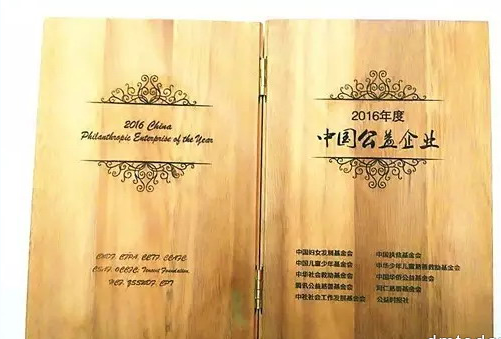 2016 China
Philanthropic Enterprise of the Year
CWDF, CFPA, CCTF, CCAFC,
Tencent Foundation,
2016年度
中国公益企业
中国妇女发展基金会
中国儿童少年基金会
中华社会救助基金会
腾讯公益慈善基金会
中社社会工作发展基金会
中国扶贫基金会
中华少年儿童慈善救助基金会
中国华侨公益基金会
同仁慈善基金会
公益时报社